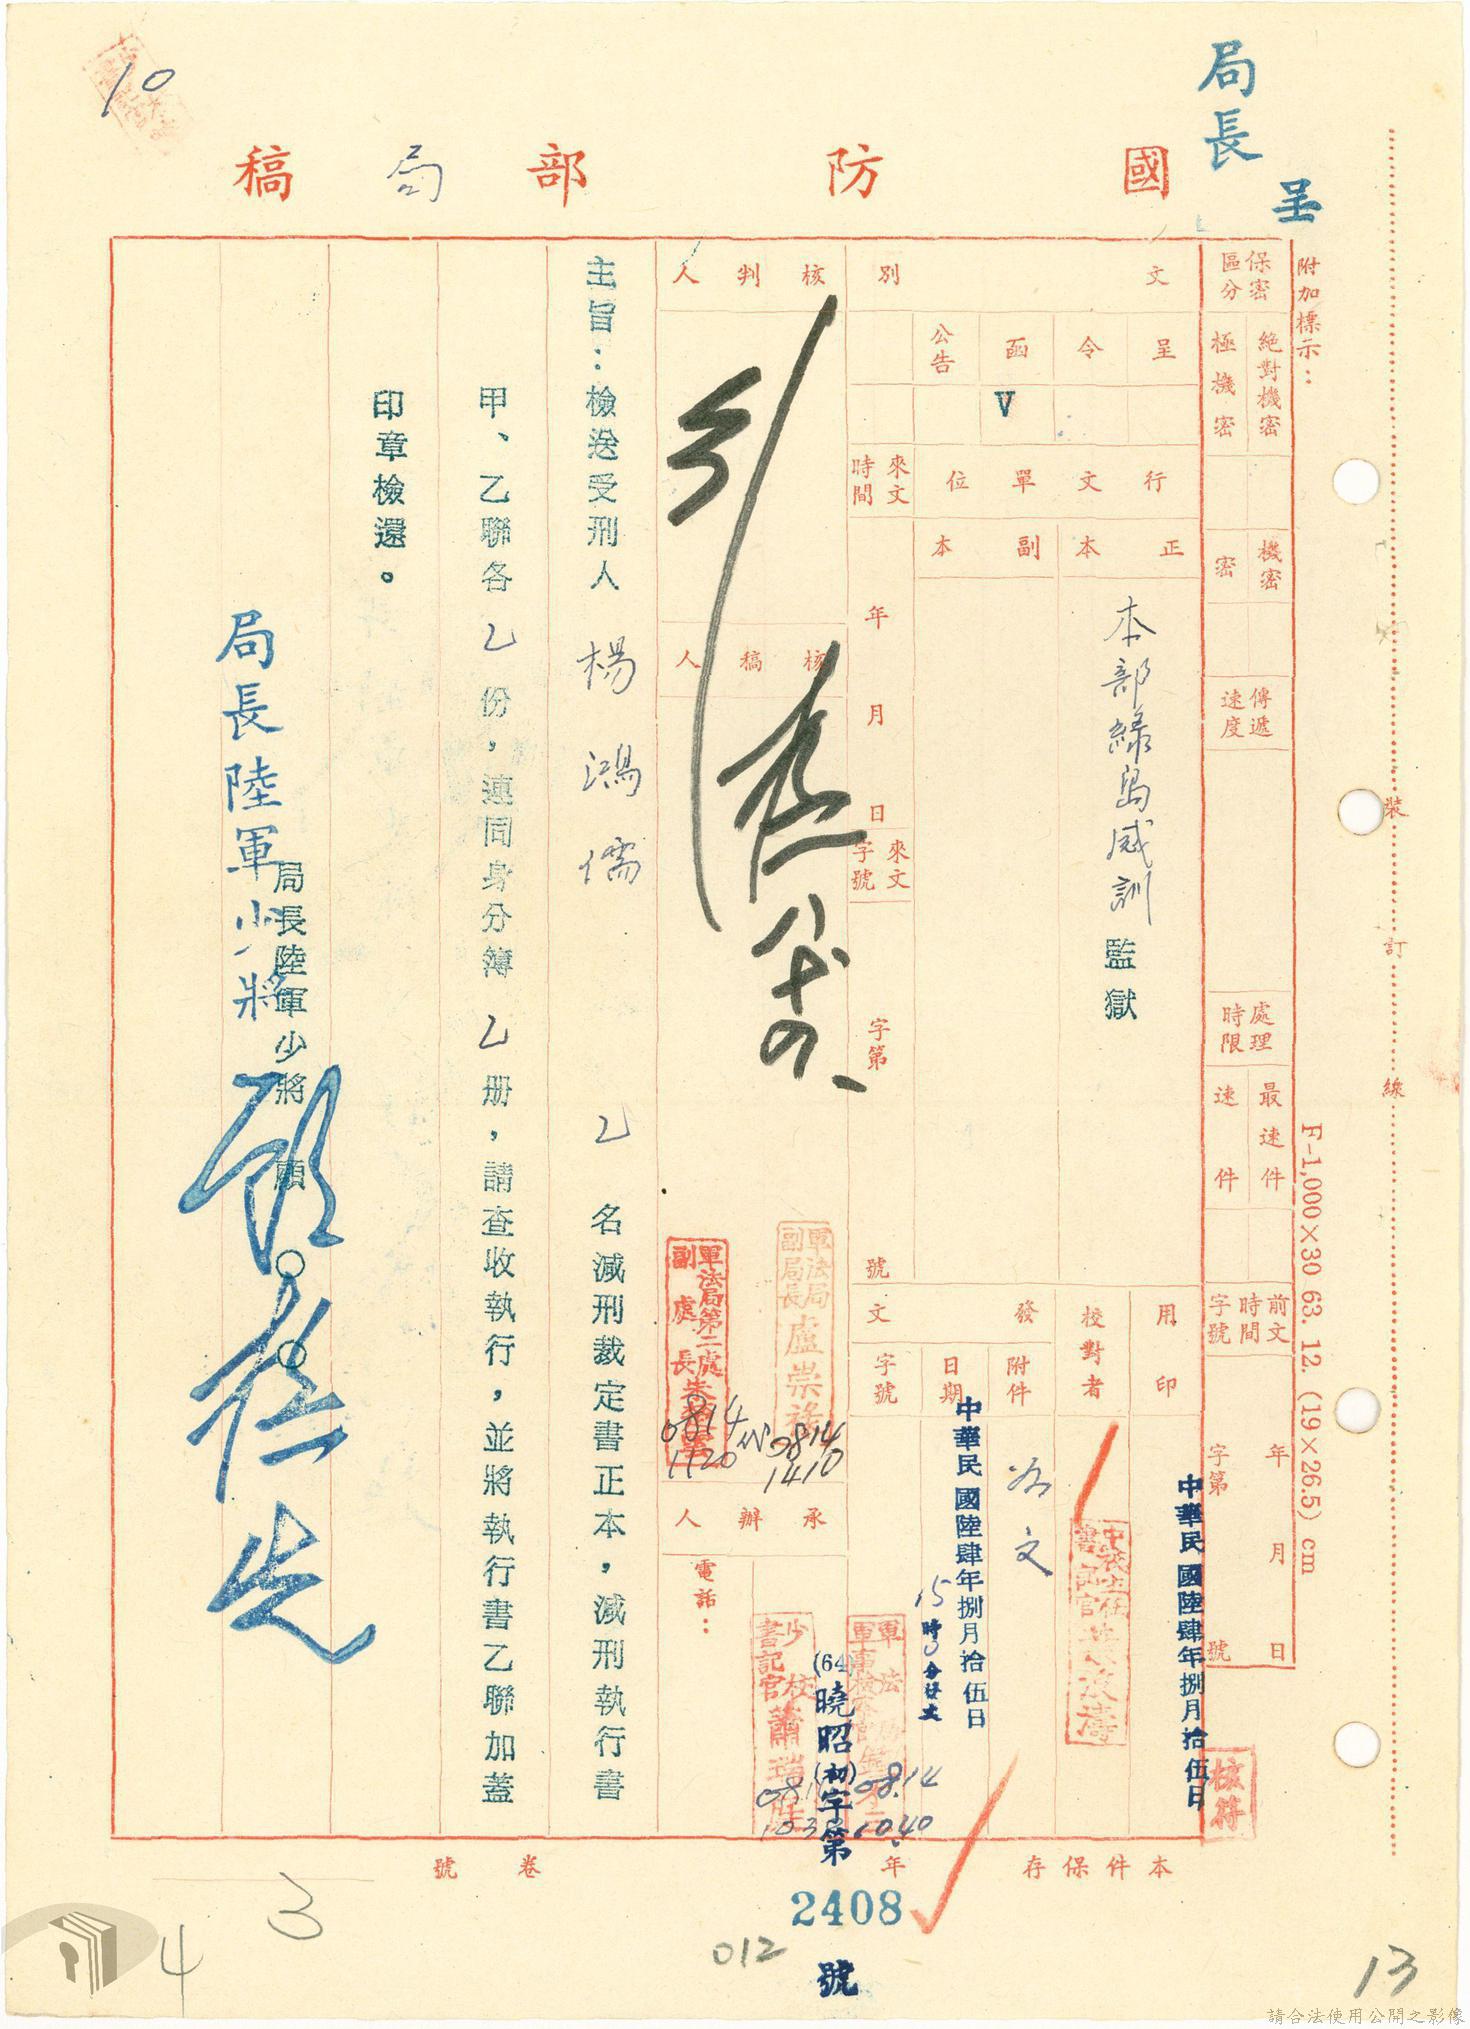 局長
呈
10
國防部局稿
附加標示：
保密區分
絕對機密
極機密
機密
密
傳遞速度
處理時限
最速件
速件
前文時間字號
年月日
字第號
F-1,000×30 63. 12. (19×26.5) cm
裝訂線
文別
呈
令
函
公告
V
行文單位
正本
副本
本部綠島感訓監獄
來文時間
年月日
來文字號
字第號
用印
中華民國陸肆年捌月拾伍日
校對者
發文
附件
如文
日期
中華民國陸肆年捌月拾伍日
15時0分發文
字號
(64)曉昭(初)字第2408號
核判人
核稿人
軍法局副局長盧崇祿
0814
1410
軍法局第二處副處長朱
0814
1120
承辦人
電話：
少校書記官蕭瑞
08.14
10.40
核符
主旨：檢送受刑人楊鴻儒乙名減刑裁定書正本，減刑執行書
甲、乙聯各乙份，連同身分簿乙册，請查收執行，並將執行書乙聯加蓋
印章檢還。
局長陸軍少將顧○○
局長陸軍少將
本件保存年
卷號
3
4
012
13
請合法使用公開之影像